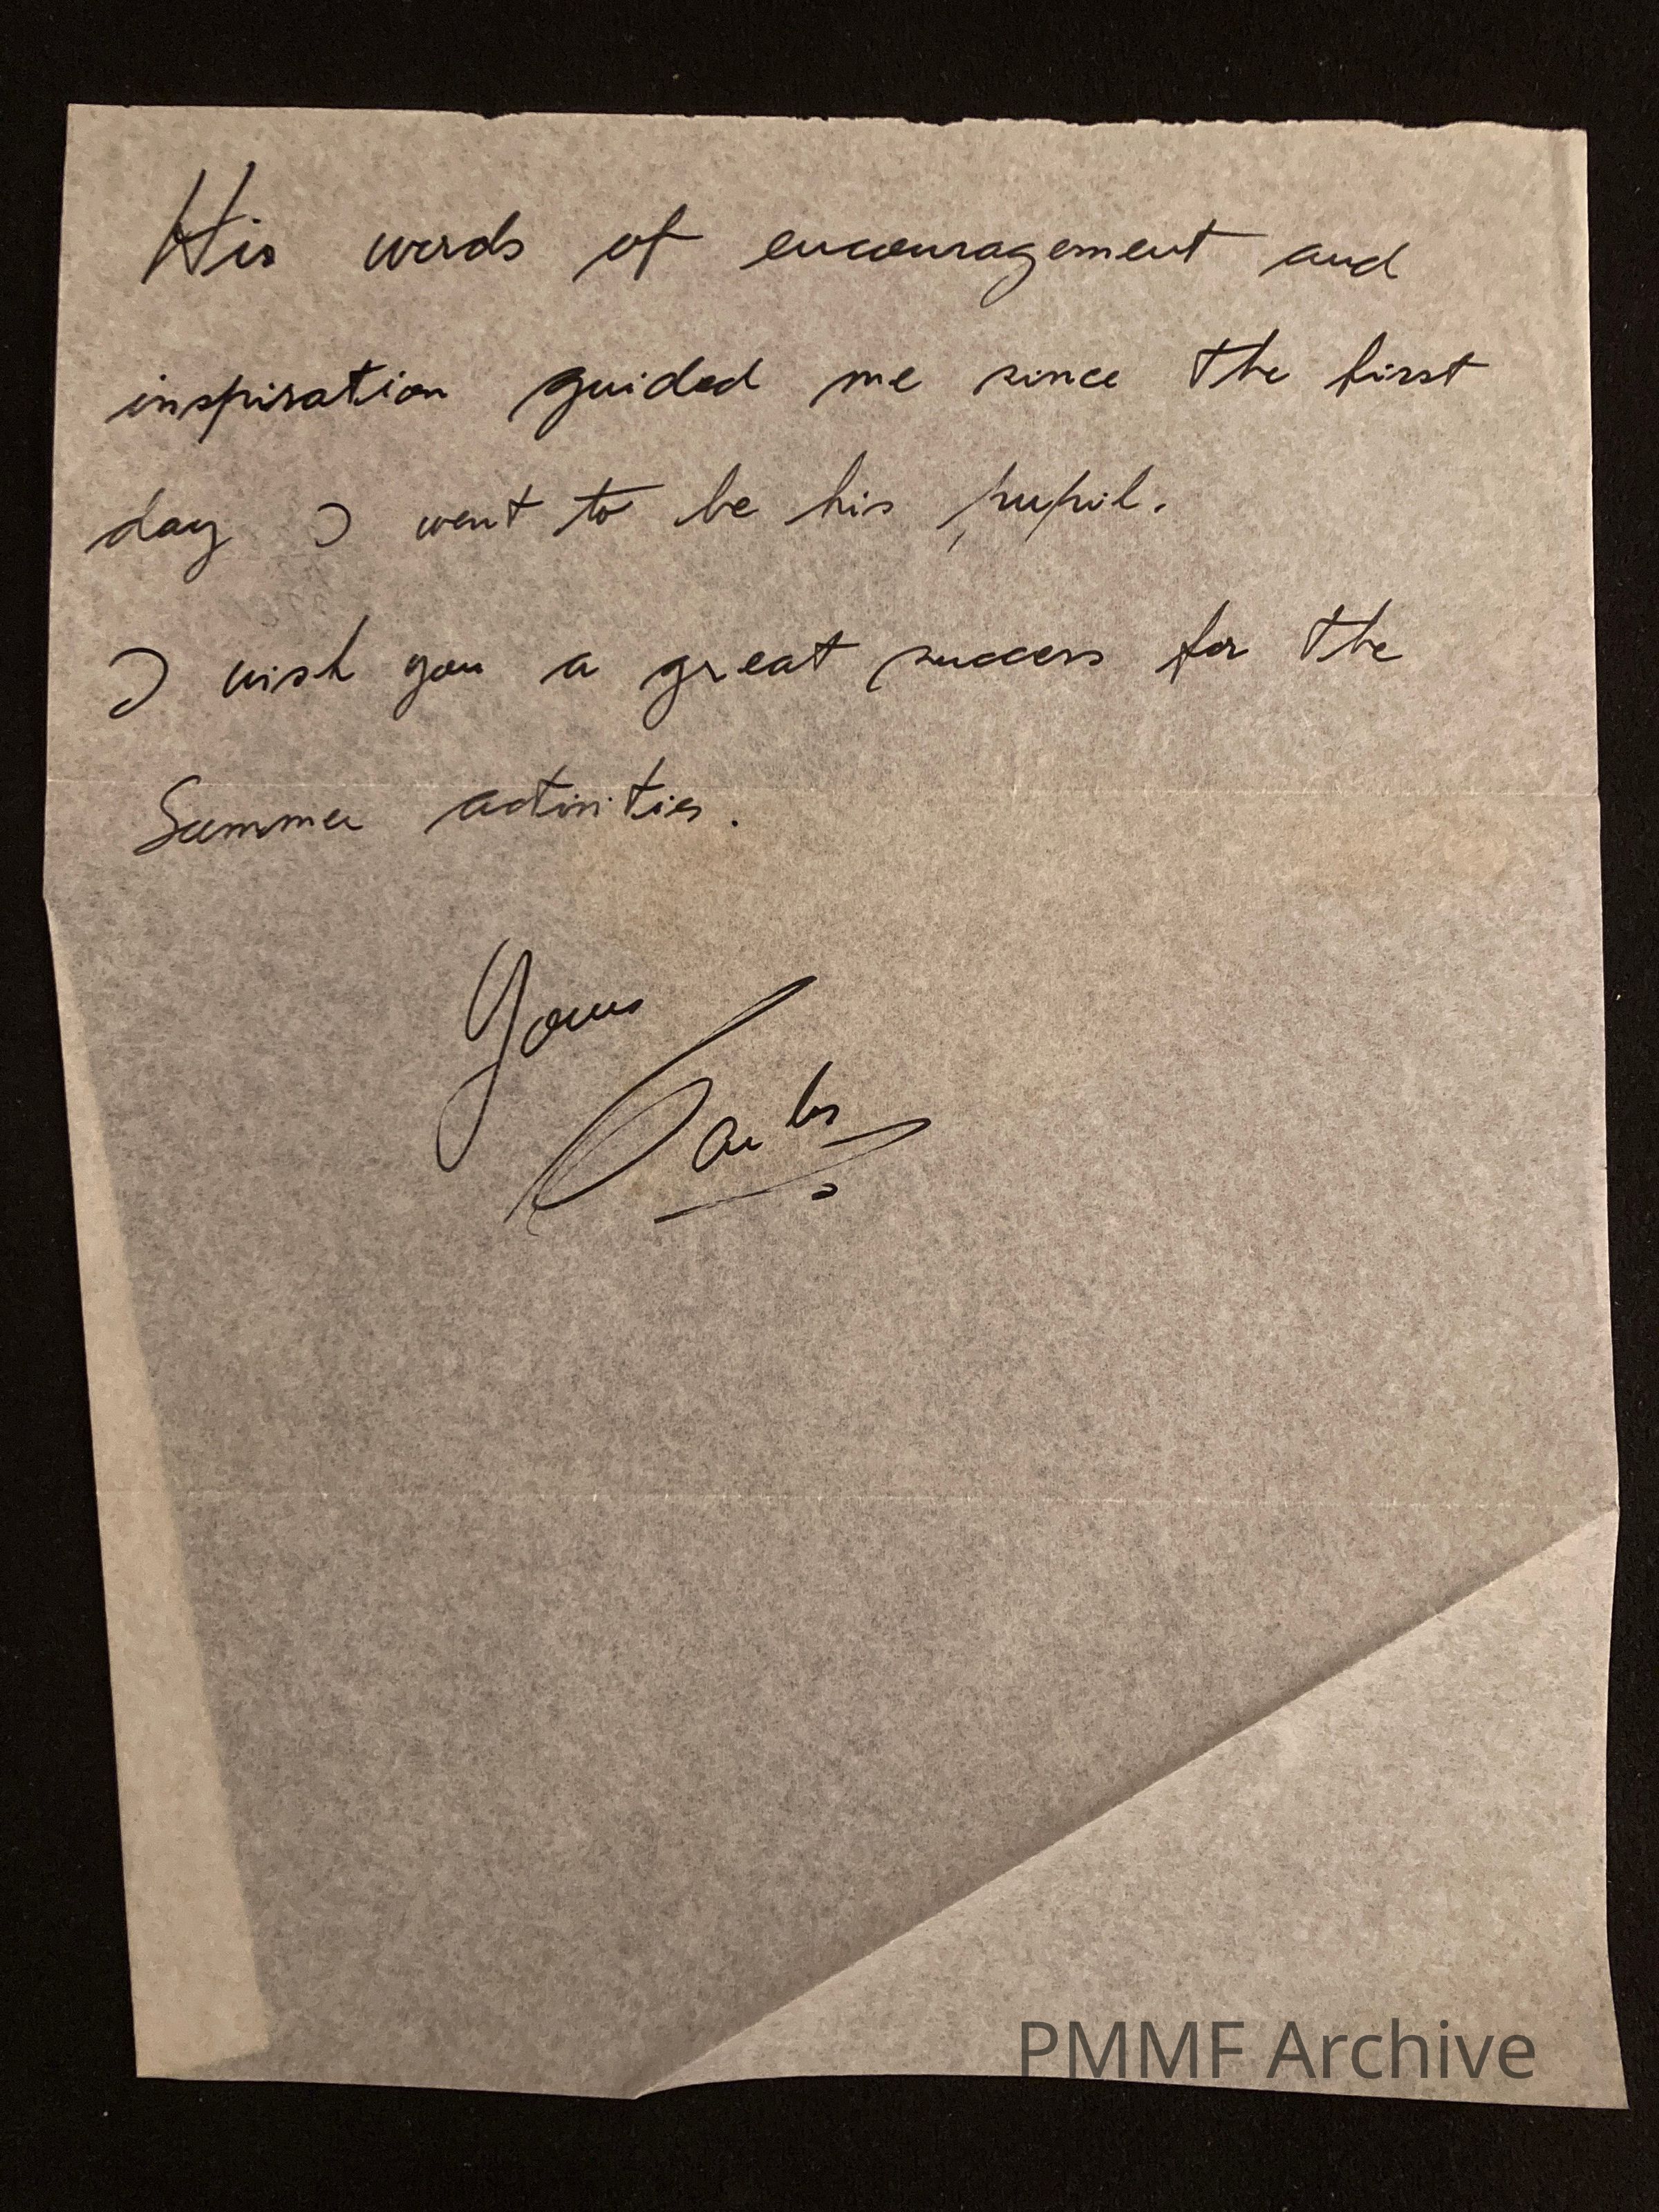 His words of encouragement and
inspiration guided me since the first
day I went to be his pupil.
I wish you a great success for the
Summer activities.
Yours
Carlos
PMMF Archive